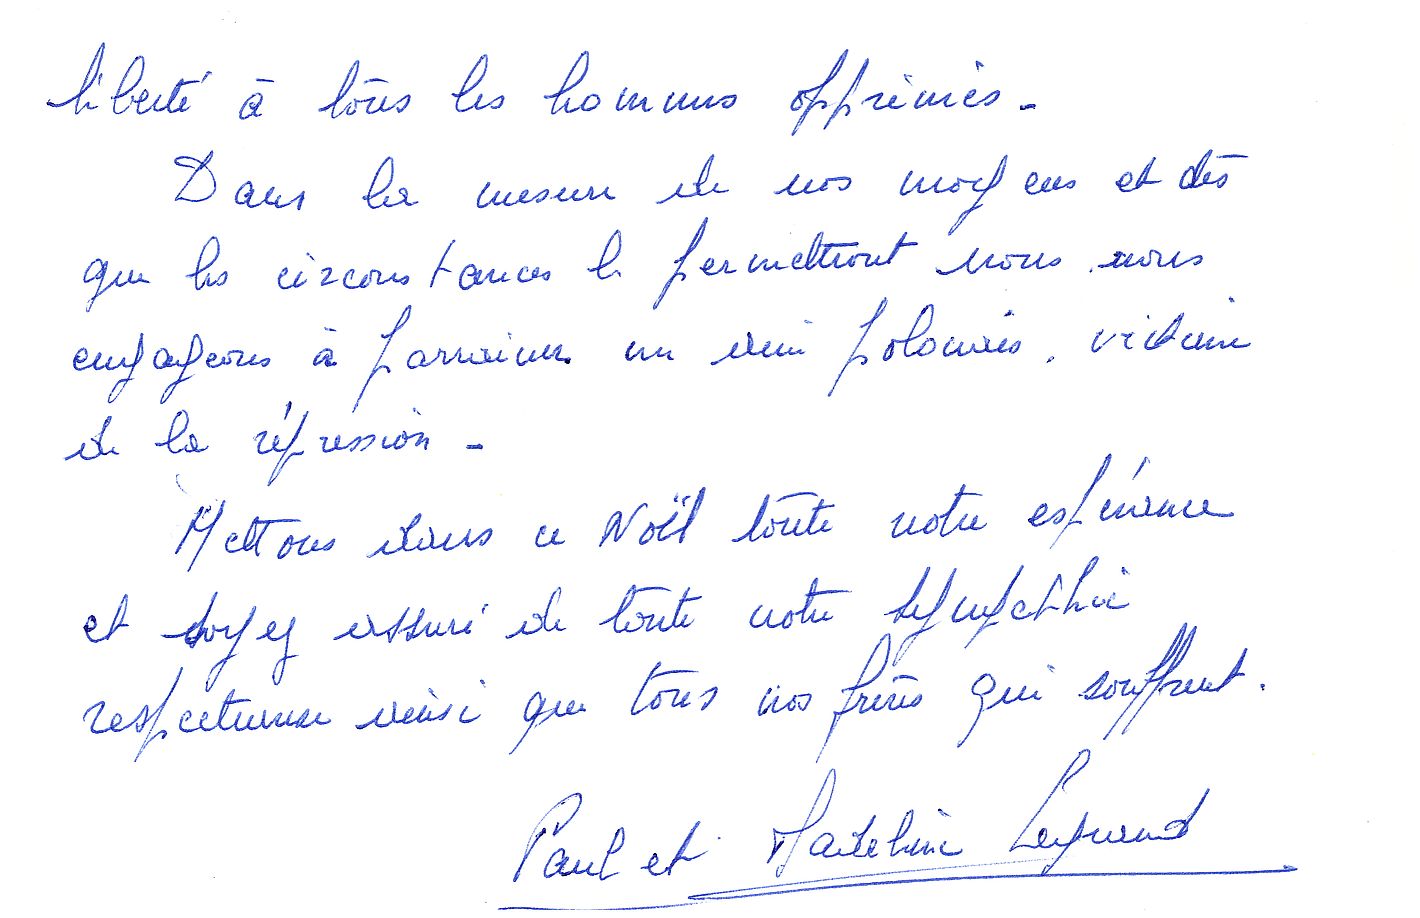 liberté à tous les hommes opprimés -
Dans la mesure de nos moyens et dès
que les circonstances le permettront nous nous
engageons à parrainer un ami polonais, victime
de la répression -
Mettons dans ce Noël toute notre espérance
et soyez assuré de toute notre sympathie
respectueuse ainsi que tous nos frères qui souffrent.
Paul et Madeleine Legrand